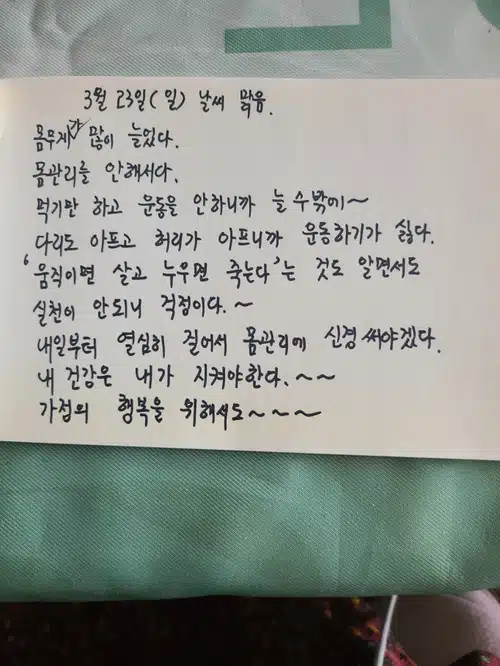 3월 23일(일) 날씨 맑음.
몸무게가 많이 늘었다.
몸관리를 안해서다.
먹기만 하고 운동을 안하니까 늘 수밖에~
다리도 아프고 허리가 아프니까 운동하기가 싫다.
'움직이면 살고 누우면 죽는다'는 것도 알면서도
실천이 안되니 걱정이다.~
내일부터 열심히 걸어서 몸관리에 신경써야겠다.
내 건강은 내가 지켜야한다.~~
가정의 행복을 위해서도~~~